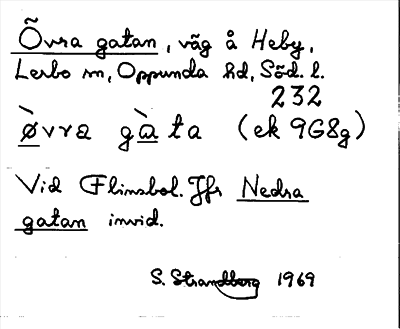 Övra gatan, väg å Heby,
Lerbo sn, Oppunda hd, Söd. l.
232
ø̀vra gàta (ek 9G8g)
Vid Flinsbol. Jfr Nedra
gatan invid.
S. Strandberg 1969